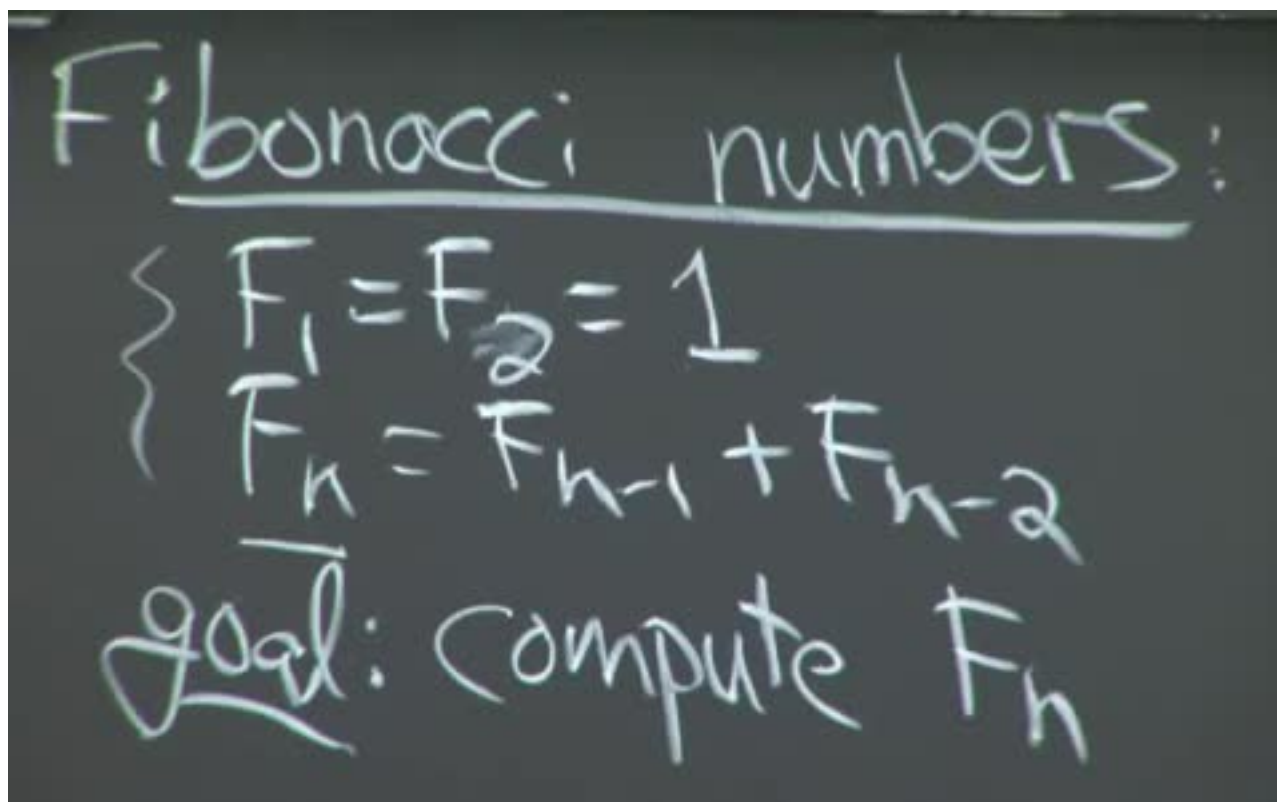 Fibonacci numbers:
F₁ = F₂ = 1
Fₙ = Fₙ₋₁ + Fₙ₋₂
goal: compute Fₙ